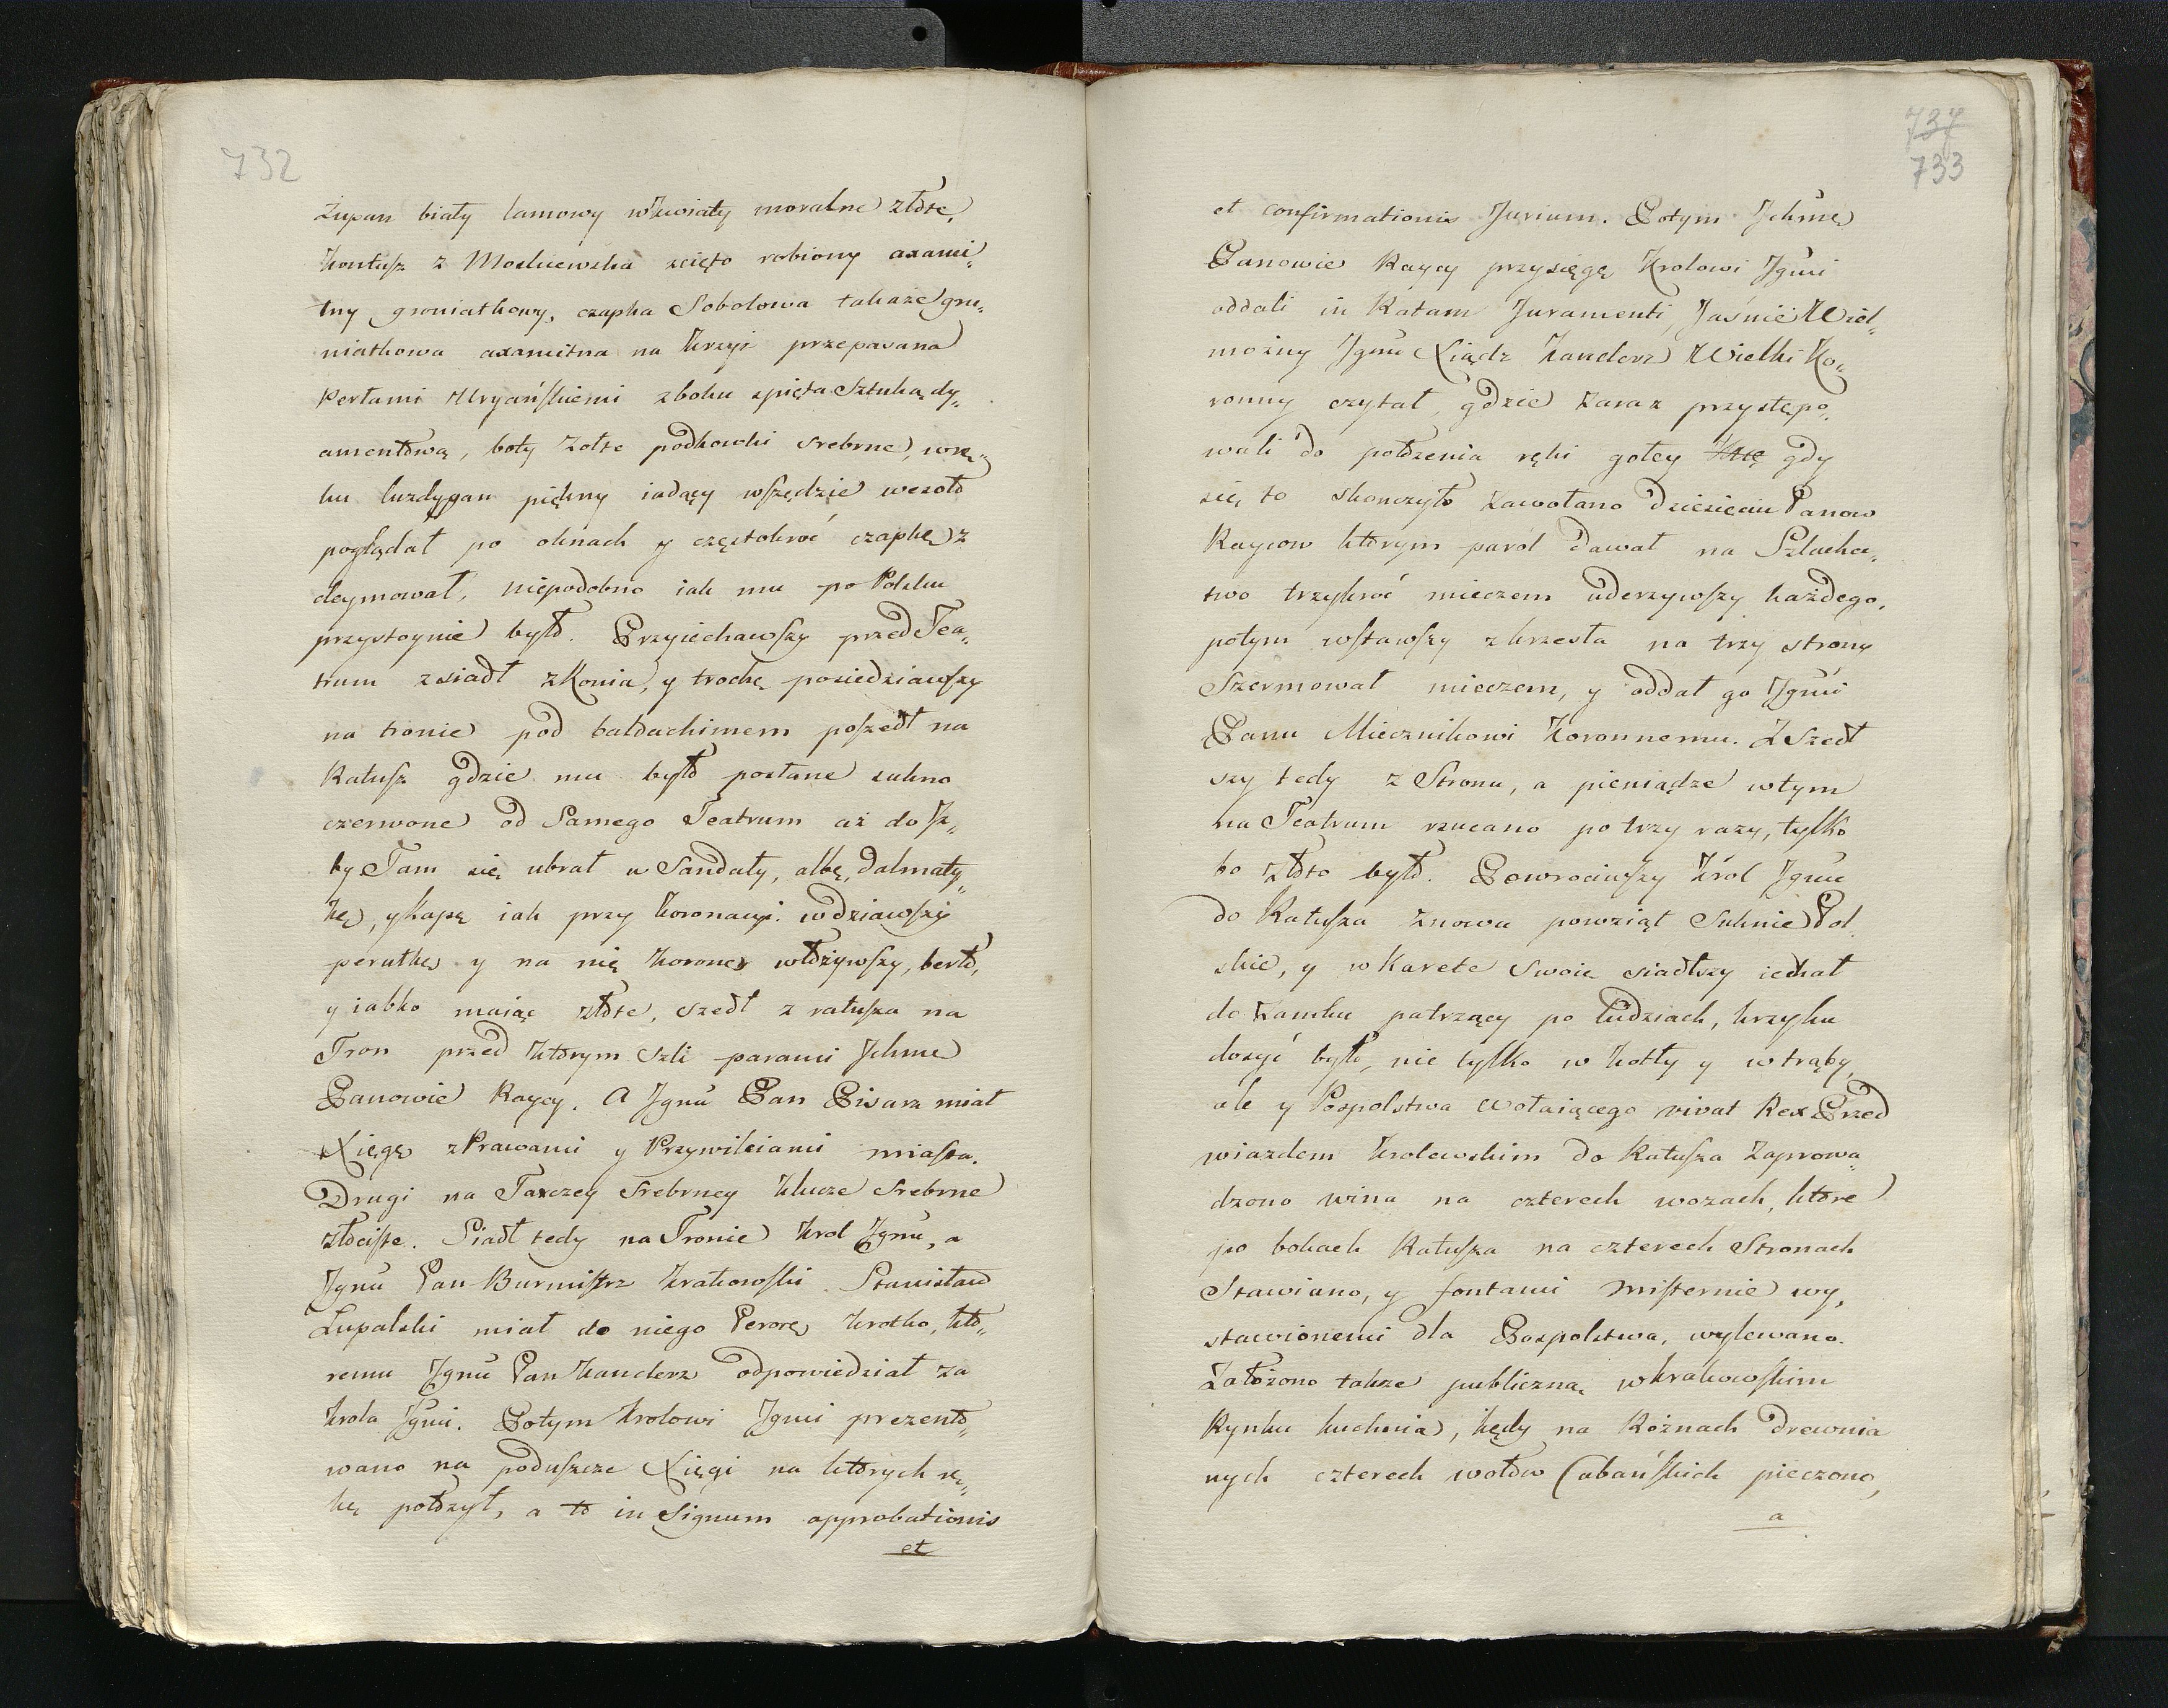 732
Żupan biały lamowy w kwiaty moralne złote,
Kontusz z Moskiewska scięto robiony axami„
tny groniatkowy, czapka Sobolowa takaże gra„
niatkowa axamitna na krzyż przepasana
Perłami Uryańskiemi z boku spięta Sztuką dy„
amentową, boty żołte podkowki srebrne, w rę„
ku buzdygan piękny iadący wszędzie wesoło
poglądał po oknach y częstokroć czapkę z
deymował, niepodobno iak mu po Polsku
przystoynie było. Przyiechawszy przed Tea„
trum zsiadł z Konia, y trochę posiedziawszy
na tronie pod baldachimem poszedł na
Ratusz gdzie mu było posłane sukno
czerwone od Samego Teatrum aż do Iz„
by Tam się ubrał w Sandały, albę, dalmaty„
kę, y kapę iak przy koronacyi. wdziawszy
perutkę y na nię koronę włożywszy, berło,
y iabko maiąc złote, szedł z ratusza na
Tron przed którym szli parami Ichme
Panowie Raycy. A Jgmć Pan Pisarz miał
Xięgę z Prawami y Przywileiami miasta.
Drugi na Taxczey Srebrney klucze srebrne
złociste. Siadł tedy na Tronie krol Jgmć, a
Jgmć Pan Burmistrz krakowski Stanisław
Łupalski miał do niego Perorę krotko, kto„
remu Jgmć Pan kanclerz odpowiedział za
krola Jgmci. Potym krolowi Jgmci prezento„
wano na poduszcze Xięgi na których rę„
kę położył, a to in Signum approbationis
et
737
733
et confirmationis Jurium. Potym Ichmę
Panowie Raycy przysięgę krolowi Jgmci
oddali in Ratam Juramenti, Jaśnie Wiel„
możny Jgmć Xiądz kanclerz Wielki ko„
ronny czytał, gdzie zaraz przystępo„
wali do położenia ręki gołey gdy
się to skonczyło zawołano dziesięciu Panow
Raycow którym parol dawał na Szlache„
two trzykroć mieczem uderzywszy każdego,
potym wstawszy z krzesła na trzy strony
Szermował mieczem, y oddał go Jgmci
Panu Miecznikowi koronnemu. Z Szedł
szy tedy z Stronu, a pieniądze wtym
na Teatrum rzucano po trzy razy, tylko
bo złoto było. Powrociwszy król Jgmć
do Ratusza znowu powziął Suknie Pol„
skie, y w Karete Swoię siadłszy iechał
do zamku patrzący po ludziach, krzyku
dosyć było, nie tylko w kotły y w trąby,
ale y Pospolstwa wołaiącego vivat Rex Przed
wiazdem krolewskim do Ratusza zaprowa„
dzono wina na czterech wozach, które
po bokach Ratusza na czterech Stronach
Stawiano, y fontami misternie wy„
stawionemi dla Pospolstwa, wylewano.
Założono takze publiczną w krakowskim
Rynku kuchnią, kędy na Rożnach drewnia
nych czterech wołow Cabańskich pieczono,
a